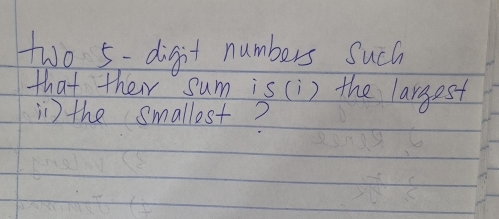 two 5-digit numbers such
that their sum is (i) the largest
ii) the smallest ?